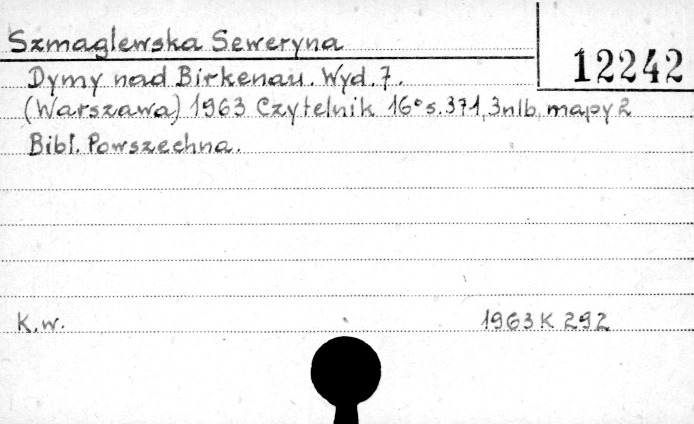 Szmaglewska Seweryna
12242
Dymy nad Birkenau. Wyd. 7.
(Warszawa) 1963 Czytelnik 16° s. 371, 3nlb, mapy 2
Bibl. Powszechna.
K.w. 1963 K 292